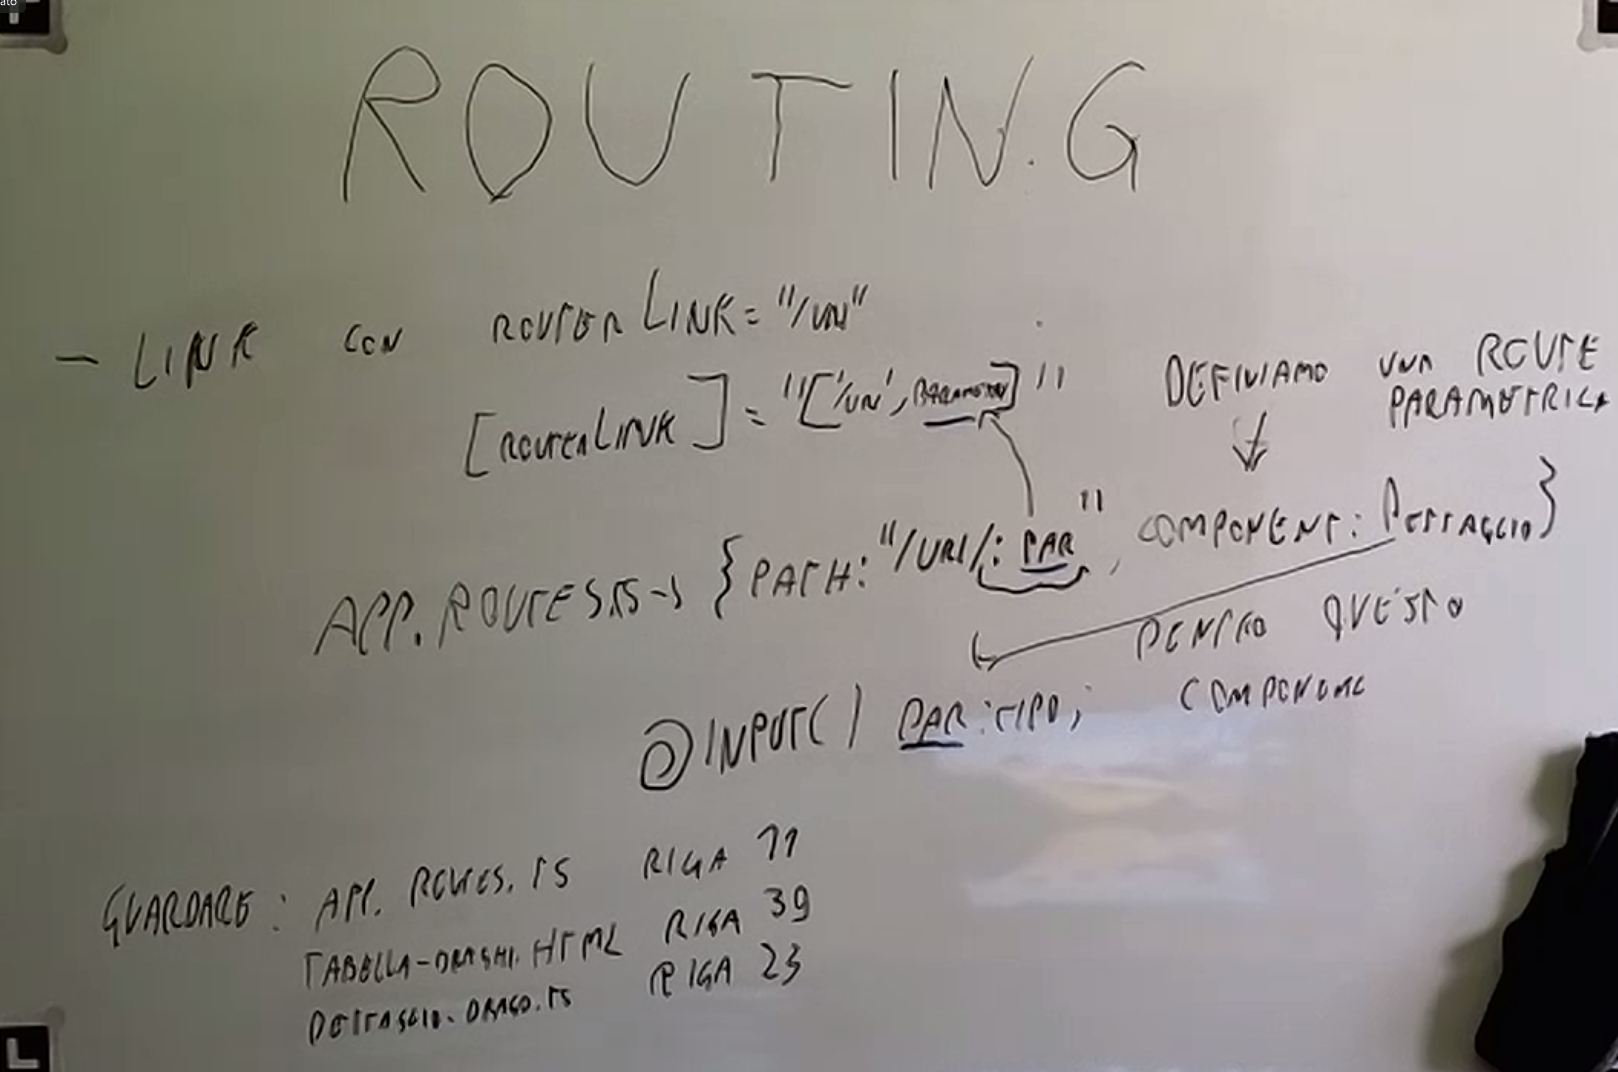 ato
ROUTING
- LINK CON ROUTERLINK="/URI"
[ROUTERLINK]="['/URI', PARAMETRO]"
DEFINIAMO UNA ROUTE
PARAMETRICA
APP.ROUTES.TS → {PATH: "/URI/:PAR", COMPONENT: DETTAGLIO}
DENTRO QUESTO
COMPONENTE
@INPUT() PAR:TIPO;
GUARDARE: APP.ROUTES.TS RIGA 11
TABELLA-DRAGHI.HTML RIGA 39
DETTAGLIO-DRAGO.TS RIGA 23